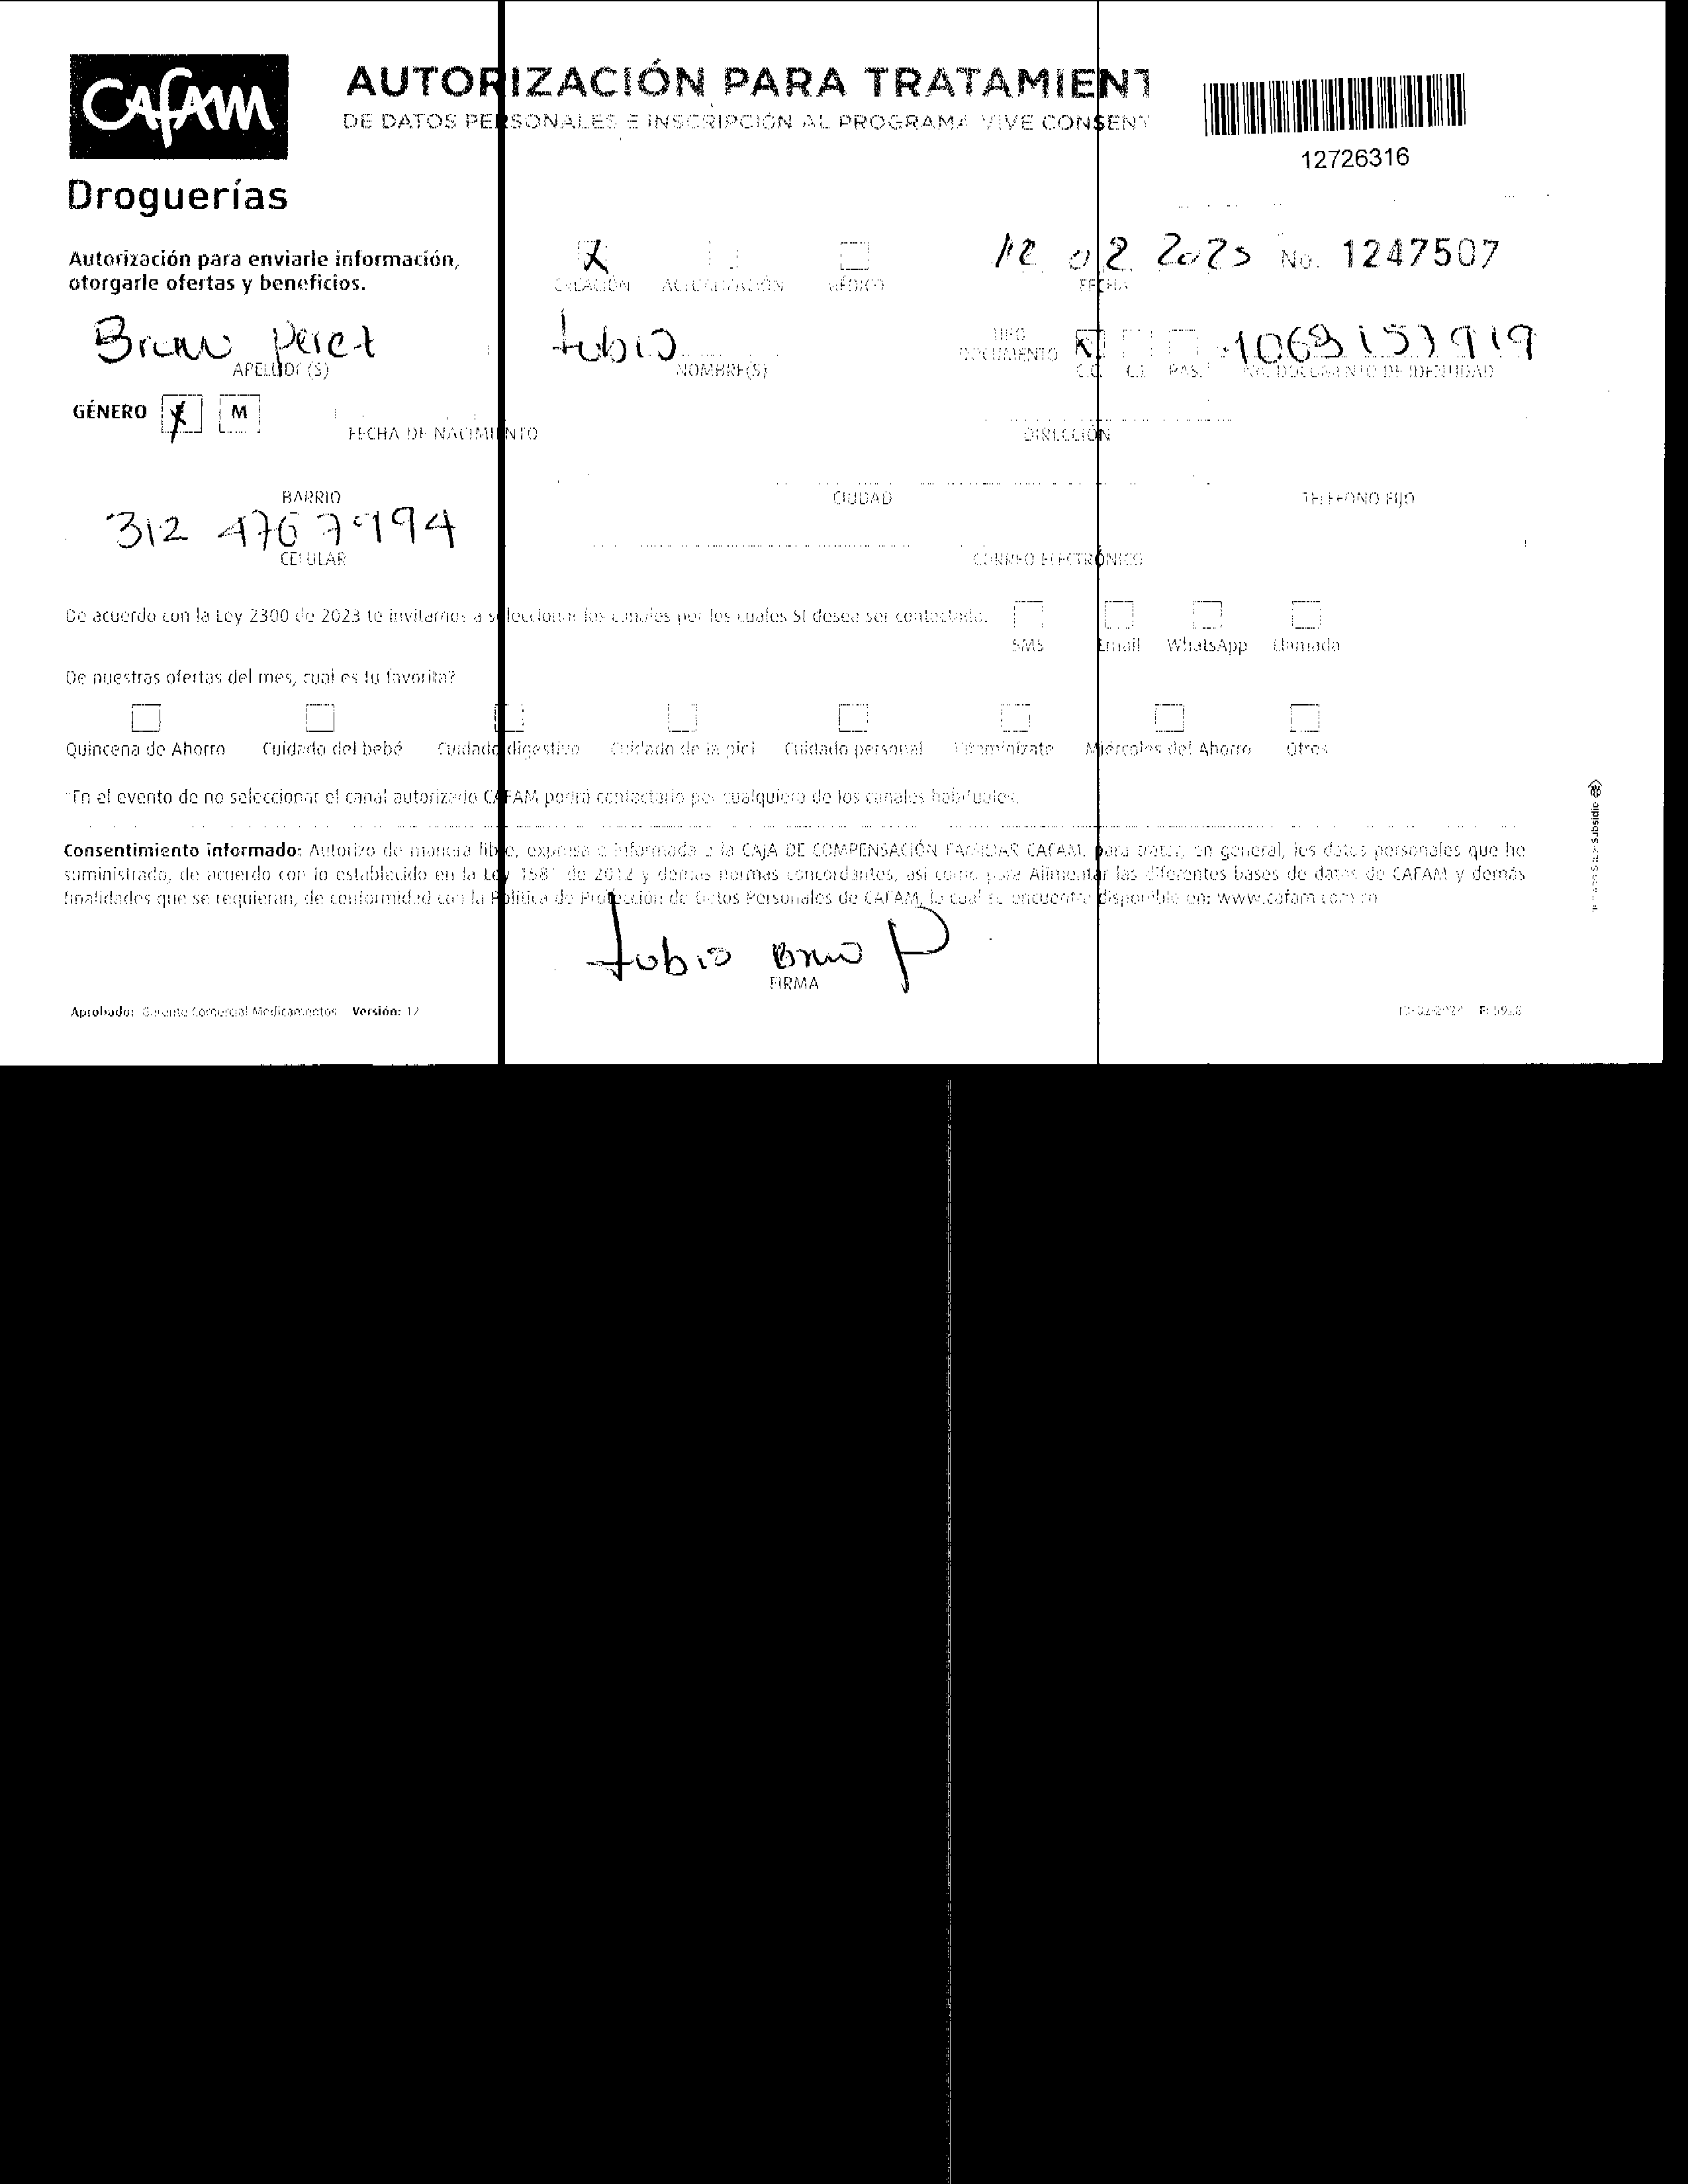 CAFAM
Droguerías
AUTORIZACIÓN PARA TRATAMIENT
DE DATOS PERSONALES E INSCRIPCIÓN AL PROGRAMA VIVE CONSENT
12726316
Autorización para enviarle información,
otorgarle ofertas y beneficios.
X
CREACIÓN ACTUALIZACIÓN MÉDICO
12 02 2025 No. 1247507
FECHA
APELLIDO(S)
NOMBRE(S)
TIPO
DOCUMENTO
X
C.C. C.E. PAS.
No. DOCUMENTO DE IDENTIDAD
GÉNERO X M
FECHA DE NACIMIENTO
DIRECCIÓN
BARRIO
CIUDAD
TELÉFONO FIJO
312 476 7994
CELULAR
CORREO ELECTRÓNICO
De acuerdo con la Ley 2300 de 2023 te invitamos a seleccionar los canales por los cuales SI desea ser contactado.
SMS Email WhatsApp Llamada
De nuestras ofertas del mes, cual es tu favorita?
Quincena de Ahorro Cuidado del bebé Cuidado digestivo Cuidado de la piel Cuidado personal Vitamínizate Miércoles del Ahorro Otros
*En el evento de no seleccionar el canal autorizado CAFAM podrá contactarlo por cualquiera de los canales habituales.
Consentimiento informado: Autorizo de manera libre, expresa e informada a la CAJA DE COMPENSACIÓN FAMILIAR CAFAM, para tratar, en general, los datos personales que he
suministrado, de acuerdo con lo establecido en la Ley 1581 de 2012 y demás normas concordantes, así como para Alimentar las diferentes bases de datos de CAFAM y demás
finalidades que se requieran, de conformidad con la Política de Protección de Datos Personales de CAFAM, la cual se encuentra disponible en: www.cafam.com.co
FIRMA
Aprobado: Gerente Comercial Medicamentos Versión: 12
Subsidio